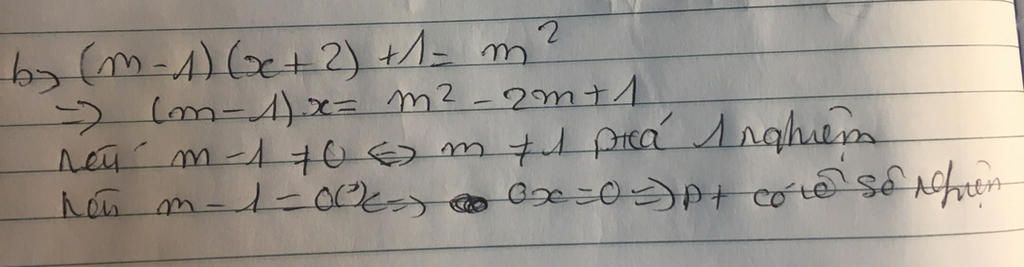 b, (m-1)(x+2)+1= m²
=> (m-1).x= m² - 2m+1
Nếu m-1 ≠0 <=> m ≠1 1 nghiệm
Nếu m-1=0 => 0x=0=>pt có số nghiện